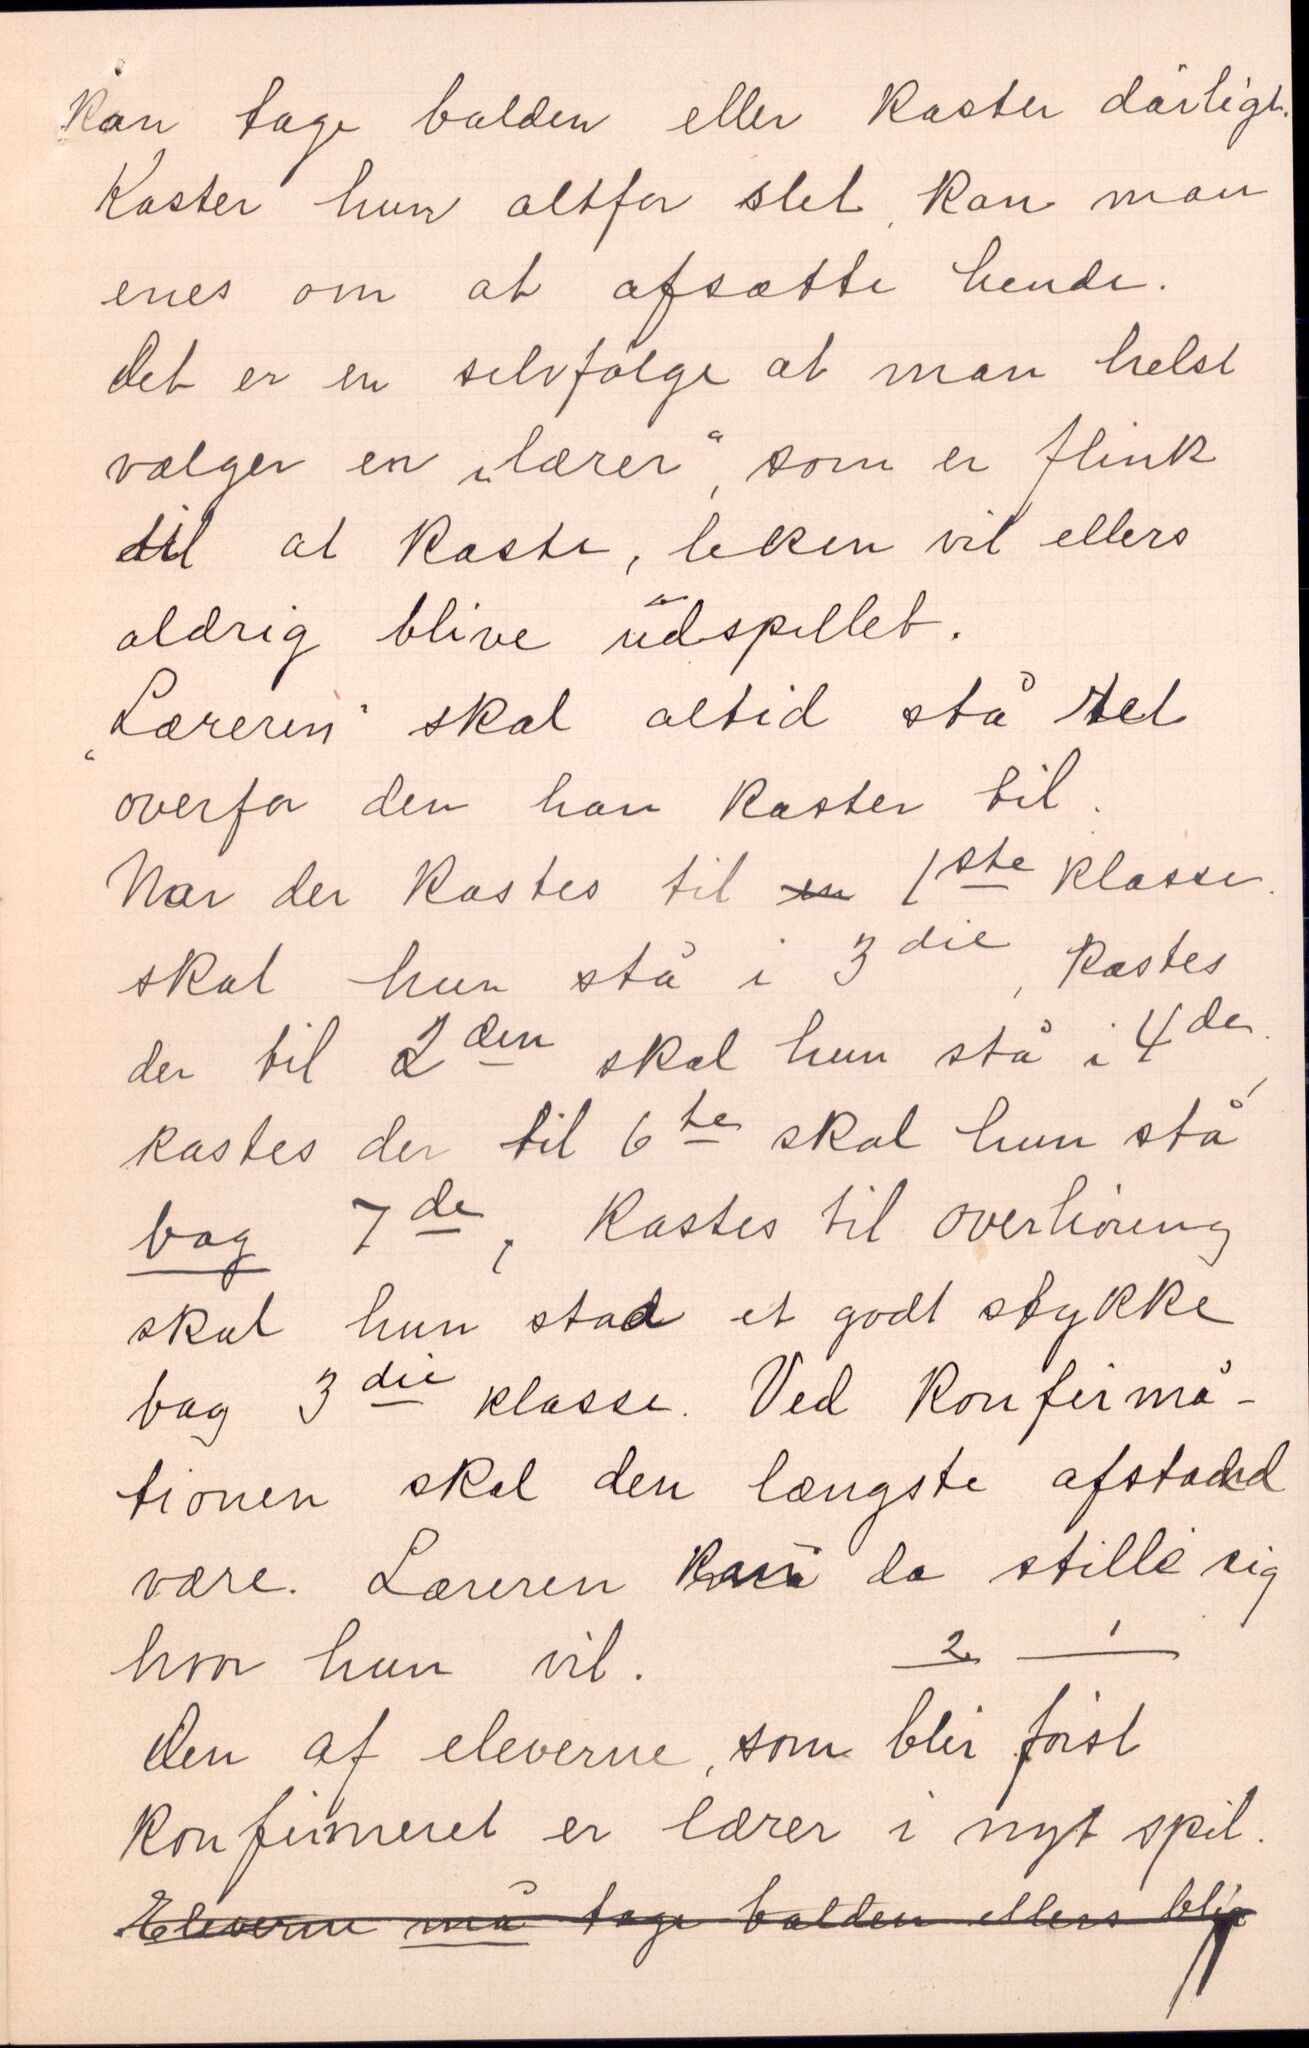 kan tage balden eller kaster dårligt.
Kaster hun altfor slet, kan man
enes om at afsætte hende.
Det er en selvfølge at man helst
vælger en „lærer“, som er flink
til at kaste, leken vil ellers
aldrig blive udspillet.
„Læreren“ skal altid stå ret
overfor den han kaster til.
Nar der kastes til en 1ste klasse
skal hun stå i 3die, kastes
der til 2den skal hun stå i 4de,
kastes der til 6te skal hun stå
bag 7de, kastes til overhøring
skal hun staa et godt stykke
bag 3die klasse. Ved konfirma-
tionen skal den længste afstand
være. Læreren kan da stille sig
hvor hun vil.
2 1
Den af eleverne, som blir først
konfirmeret er lærer i nyt spil.
Eleverne må tage balden ellers